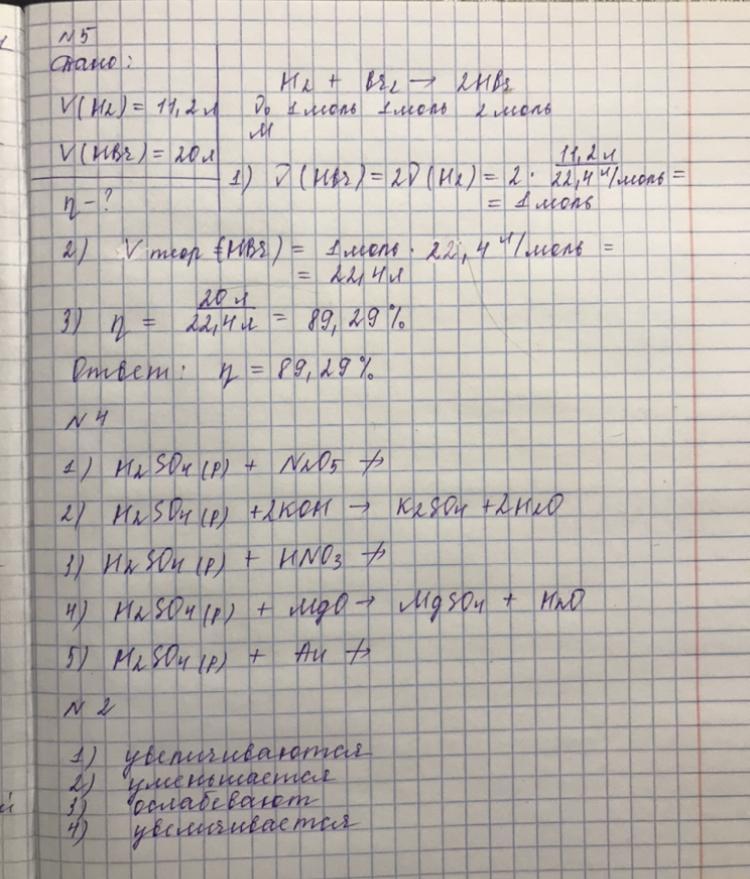 N5
Дано:
H2 + Br2 → 2HBr
V(H2) = 11,2 л
По 1 моль 1 моль 2 моль
V(HBr) = 20 л
1) ν(HBr) = 2ν(H2) = 2 · 11,2 л / 22,4 л/моль =
= 1 моль
η - ?
2) V теор (HBr) = 1 моль · 22,4 л/моль =
= 22,4 л
3) η = 20 л / 22,4 л = 89,29 %
Ответ: η = 89,29 %
N 4
1) H2SO4 (р) + N2O5 ↛
2) H2SO4 (р) + 2KOH → K2SO4 + 2H2O
3) H2SO4 (р) + HNO3 ↛
4) H2SO4 (р) + MgO → MgSO4 + H2O
5) H2SO4 (р) + Au ↛
N 2
1) увеличиваются
2) уменьшается
3) ослабевают
4) увеличивается